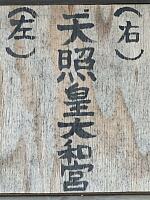 （右）
天照皇大和宮
（左）